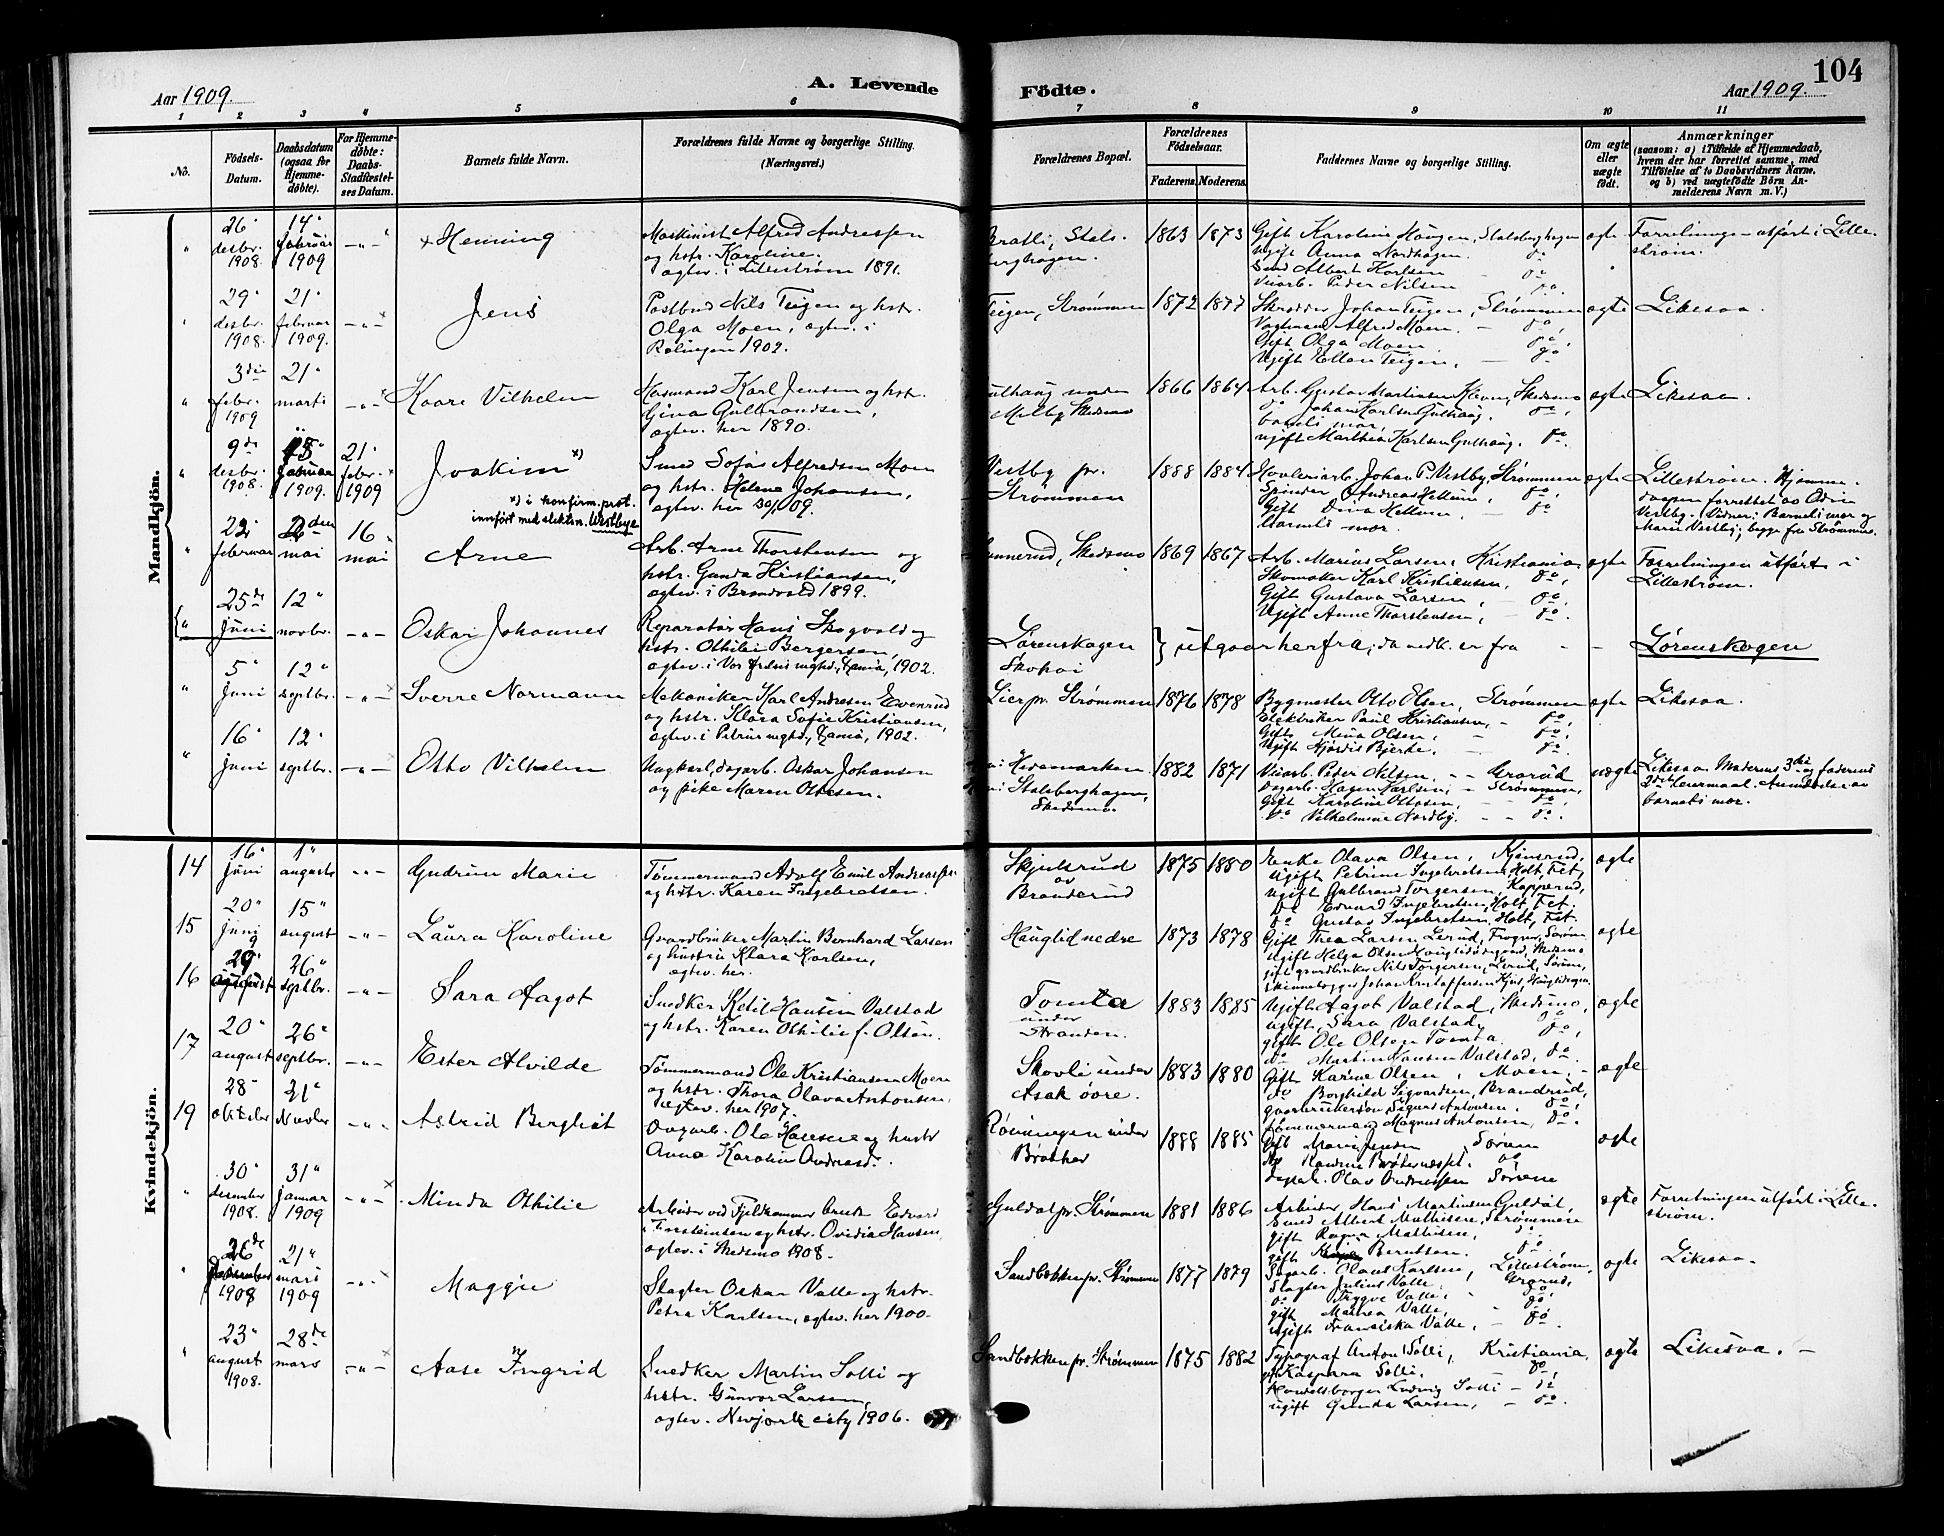 Aar 1909.
A. Levende
Födte.
Aar 1909.
104
1 2 3 4 5 6 7 8 9 10 11
No.
Födsels-Datum.
Daabsdatum (ogsaa for Hjemme-döbte).
For Hjemme-döbte: Daabs-Stadfæstel-ses Datum.
Barnets fulde Navn.
Forældrenes fulde Navne og borgerlige Stilling.
(Næringsvei.)
Forældrenes Bopæl.
Forældrenes Födselsaar.
Faderens. Moderens.
Faddernes Navne og borgerlige Stilling.
Om ægte eller uægte födt.
Anmærkninger
(saasom: a) i Tilfælde af Hjemmedaab,
hvem der har forrettet samme, med
Tilföielse af to Daabsvidners Navne,
og b) ved uægtefödte Börn An-
melderens Navn m. V.)
Mandkjön.
26' desbr. 1908 14' februar 1909
Henning
Maskinist Alfred Andressen
og hstr. Karoline.
ægtev. i Lillestrøm 1891.
Bratli, Stals-
berghagen.
1863 1873
Gift Karoline Haugen, Stalsberghagen
Ugift Anna Nordhagen do
Smed Albert Karlsen do
Murarb. Peder Nilsen do
ægte
Forretningen utført i Lille-
strøm.
29' desbr. 1908. 21' februar 1909.
Jens
Postbud Nils Teigen og hstr.
Olga Moen, ægtev. i
Rælingen 1902.
Teigen, Strømmen
1872 1877
Skrædder Johan Teigen, Strømmen
Vogtmand Alfred Moen. do
Gift Olga Moen do
Ugift Ellen Teigen, do
ægte
Likesaa.
3die febr. 1909 21' marts
Kaare Vilhelm
Husmand Karl Jensen og hstr.
Gina Gulbrandsen,
ægtev. her 1890.
Gulhaug under
Melby, Skedsmo
1866 1864
Arb. Gustav Martinsen Kleven, Skedsmo
do Johan Karlsen Gulhaug. do
barnets mor,
ugift Marthea Karlsen Gulhaug. do
ægte
Likesaa.
9de desbr. 1908. 15' februar 1909. 21' febr. 1909
Joakim x)
x) i konfirm.prot.
innført med slektsn. Westbye
Smed Sofus Alfredsen Moen
og hstr. Helene Johansen,
ægtev. her 30/1 09.
Vestby pr.
Strømmen
1888 1884
Høvleriarb. Johan P. Vestby, Strømmen
Spinder Andreas Hellum, do
Gift Dina Hellum, do
Barnets mor.
ægte
Lillestrøm. Hjemme-
daapen forrettet av Odin
Vestby. Vidner: Barnets mor og
Marie Vestby, begge fra Strømmen.
22' februar 2den mai 16' mai
Arne
Arb. Arne Thorstensen og
hstr. Gunda Kristiansen,
ægtev. i Brandvold 1899.
1869 1867
Arb. Marius Larsen, Kristiania
Skomaker Karl Kristiansen, do,
Gift Gustava Larsen, do,
Ugift Anne Thorstensen, do.
ægte
Forretningen utført i
Lillestrøm.
25de juni 12' novbr.
Oskar Johannes
Reparatør Hans Skogvold og
hstr. Othilie Bergersen,
ægtev. i Vor frelsers mght., Xania, 1902.
Lørenskogen
} utgaar herfra, da vedk. er fra
Lørenskogen
5' juni 12' septbr.
Sverre Normann
Mekaniker Karl Andersen Evenrud
og hstr. Klara Sofie Kristiansen,
ægtev. i Petrus mght., Xania, 1902.
Lier pr. Strømmen
1876 1878
Bygmester Otto Olsen, Strømmen
Elektriker Paul Kristiansen, do,
Gift Mina Olsen, do,
Ugift Hjørdis Bjerke, do.
ægte
Likesaa.
16' juni 12' septbr.
Otto Vilhelm
Ungkarl, dagarb. Oskar Johansen
og pike Maren Ottesen.
Hedemarken
Stalsberghagen,
Skedsmo.
1882 1871
Murarb. Peder Nilsen, Grorud
Dagarb. Hagen Karlsen, Strømmen,
Gift Karoline Ottosen, do,
do Vilhelmine Nordby. do.
uægte
Likesaa. Moderens 3die og faderens
2det leiermaal. Anmeldelse av
barnets mor.
Kvindekjön.
14 16' juni 1' august
Gudrun Marie
Tømmermand Adolf Emil Andreassen
og hstr. Karen Ingebretsen.
Skjulsrud
av
Branderud
1875 1880
Enke Olava Olsen, Kjensrud,
Ugift Petrine Ingebretsen, Holt, Fet,
ugift Gulbrand Torgersen, Kopperud,
do Edvard Ingebretsen, Holt, Fet.
do Gustav Ingebretsen, Holt, Fet.
ægte
15 20' juni 15' august
Laura Karoline
Gaardbruker Martin Bernhard Larsen
og hustru Klara Karlsen,
ægtev. her.
Hauglid nedre
1873 1878
Gift Thea Larsen Lerud, Frogner, Sørum
ugift Helga Olsen Hauglidødegaard, Skedsmo
gift gaardbruker Nils Torgersen, Lerud, Sørum,
ægte
16 29' august 26' septbr.
Sara Aagot
Snedker Ketil Hansen Valstad
og hstr. Karen Othilie f. Olsen.
Tomta
under
Stranden.
1883 1885
Ugift Aagot Valstad, Skedsmo,
ugift Sara Valstad, do,
gift Ole Olsen Tomta.
do Martin Hansen Valstad, do.
ægte
17 20' august 26' septbr.
Ester Alvilde
Tømmermand Ole Kristiansen Moen
og hstr. Thora Olava Antonsen,
ægtev. her 1907.
Skovli under
Asak øvre.
1883 1880
Gift Karine Olsen, Moen,
do Borghild Sigvardsen, Brandrud,
gaardbrukersøn Sigurd Antonsen. do,
tømmermand Magnus Antonsen, do.
ægte
19 28' oktober 21' Novbr
Astrid Bergliot
Dagarb. Ole Hansen og hustr
Anna Karolin Andreasd.
Rønningen under
Brøther
1888 1885
Gift Maria Jensen Sørum
Dagarb. Olav Andreassen Sørum
ægte
30' desember 1908. 31' januar 1909
Minda Othilie
Arbeider ved Fjeldhammer bruk Edvard
Torsteinsen og hstr. Ovidia Hansen,
ægtev. i Skedsmo 1908.
Guldal pr. Strømmen
1881 1886
Arbeider Hans Martinsen Guldal,
Smed Albert Mathisen, Strømmen
gift Ragna Mathisen, do
gift Berntsen. do
ægte
Forretningen utført i Lille-
strøm.
26de 1908 21' mars 1909
Maggie
Slagter Oskar Valle og hstr.
Petra Karlsen, ægtev. her 1900.
Sandbækken pr. Strømmen
1877 1879
Dagarb. Olaus Karlsen, Lillestrøm,
Slagter Julius Valle, Grorud,
do Trygve Valle, do,
gift Marnea Valle, do,
ugift Franciska Valle, do.
ægte
Likesaa.
23' august 1908. 28de mars
Aase Ingrid
Snedker Martin Solli og
hstr. Gunvor Larsen,
ægtev. Newjork city 1906.
Sandbækken pr. Strømmen
1875 1882
Typograf Anton Solli, Kristiania,
gift Kaspara Solli. do,
Handelsborger Ludvig Solli do
ugift Gunda Larsen, do.
ægte
Likesaa.